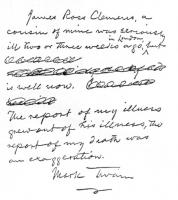 James Ross Clemens, a
cousin of mine was seriously
ill two or three weeks ago, in London but
is well now.
The report of my illness
grew out of his illness, the
report of my death was
an exaggeration.
Mark Twain